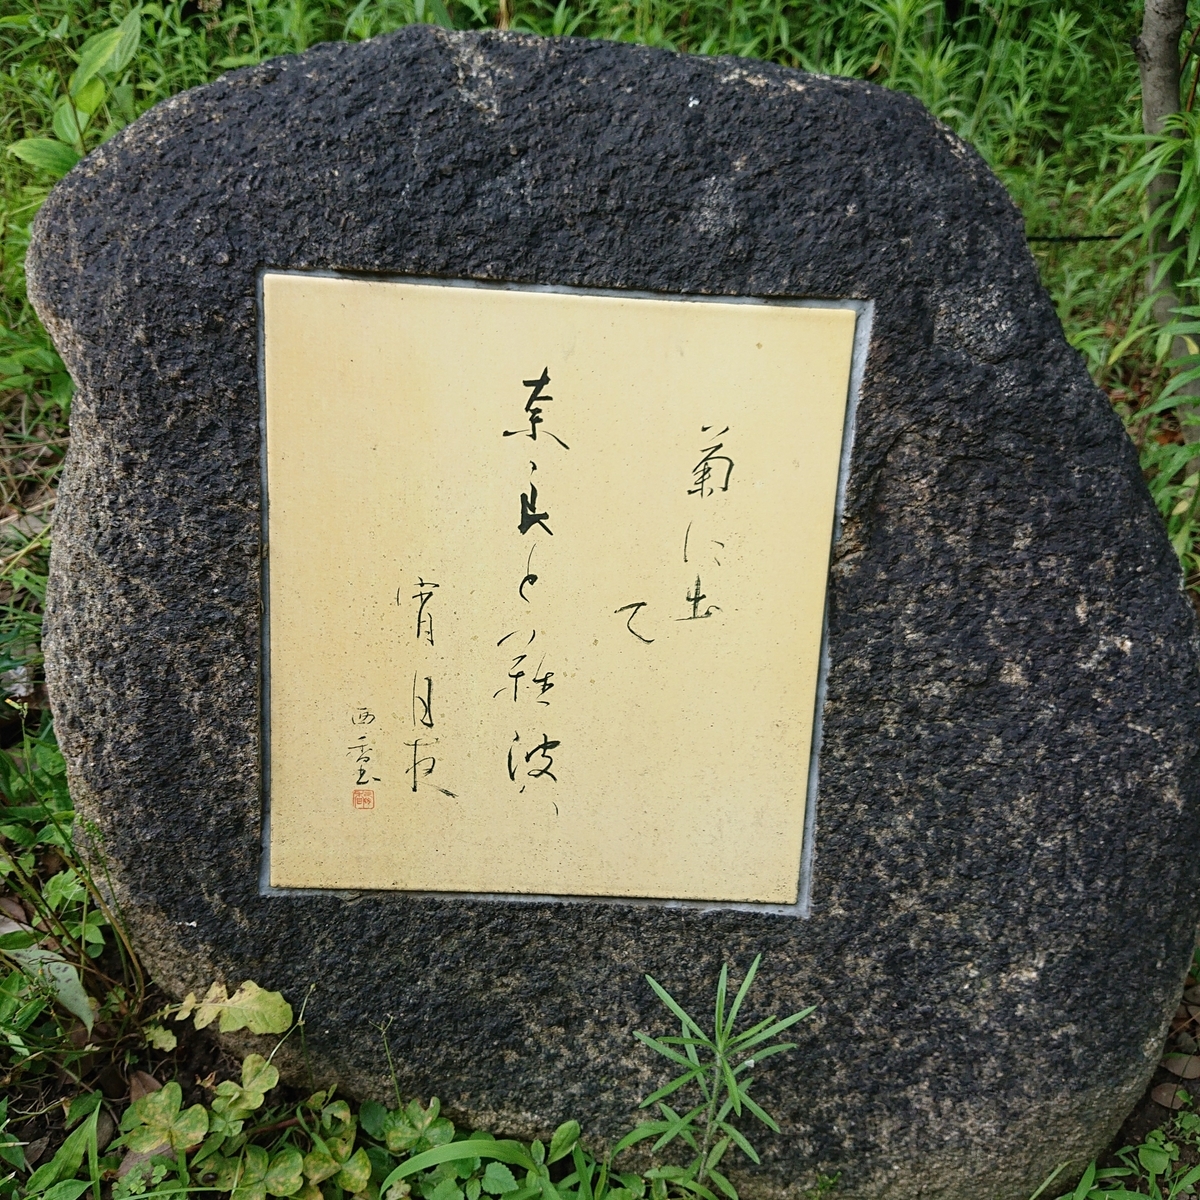 菊に出
て
奈良と難波ハ
宵月夜